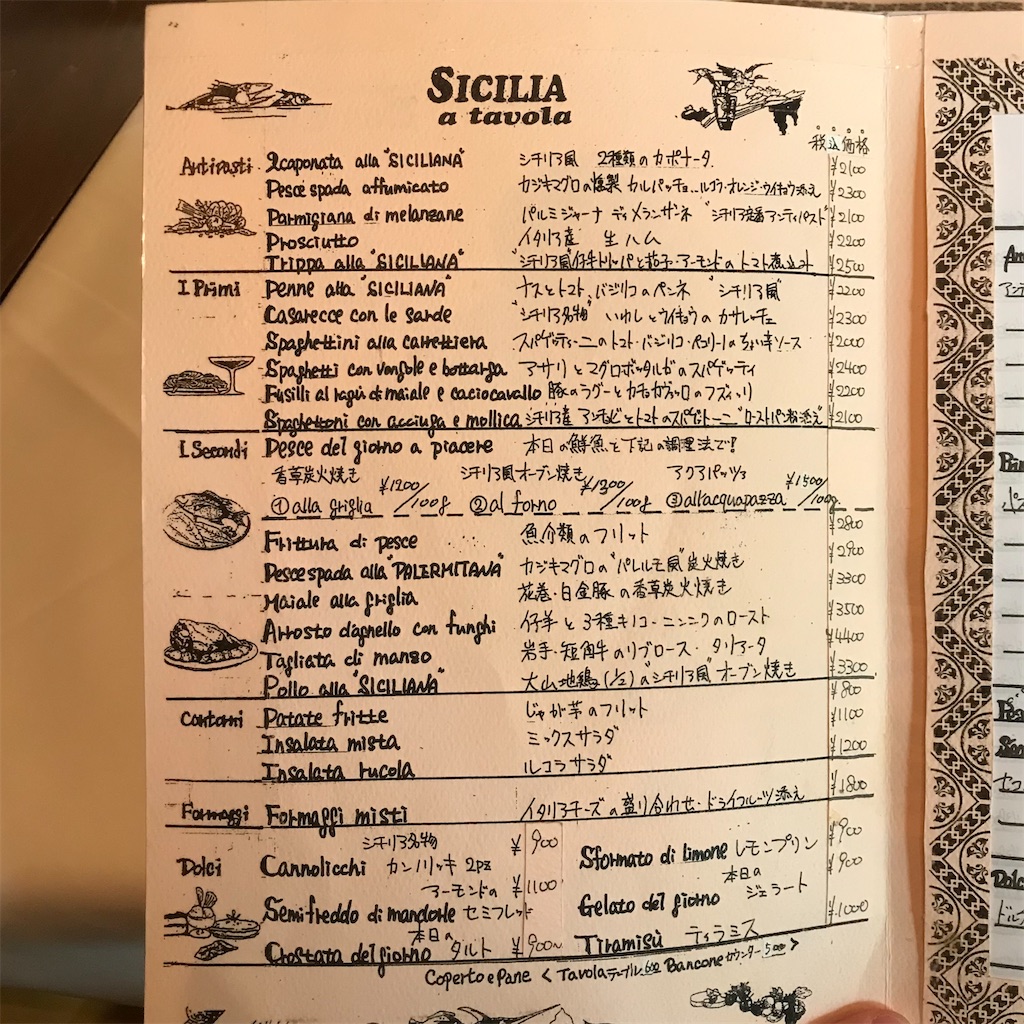 SICILIA
a tavola
税込価格
Antipasti 2caponata alla "SICILIANA" シチリア風 2種類のカポナータ ¥2100
Pesce spada affumicato カジキマグロの燻製 カルパッチョ ルコラ・オレンジ・ウイキョウ添え ¥2300
Parmigiana di melanzane パルミジャーナ ディ メランザーネ "シチリア定番アンティパスト" ¥2100
Prosciutto イタリア産 生ハム ¥2200
Trippa alla "SICILIANA" "シチリア風"仔牛トリッパと茄子・アーモンドのトマト煮込み ¥2500
I Primi Penne alla "SICILIANA" ナスとトマト、バジリコのペンネ "シチリア風" ¥2200
Casarecce con le sarde "シチリア名物" いわしとウイキョウのカサレッチェ ¥2300
Spaghettini alla carrettiera スパゲッティーニのトマト・バジリコ・ペコリーノのちょい辛ソース ¥2000
Spaghetti con vongole e bottarga アサリとマグロボッタルガのスパゲッティ ¥2400
Fusilli al ragù di maiale e caciocavallo 豚のラグーとカチョカヴァッロのフズィッリ ¥2200
Spaghettoni con acciuga e mollica シチリア産 アンチョビとトマトのスパゲットーニ "ローストパン粉添え" ¥2100
I Secondi Pesce del giorno a piacere 本日の鮮魚を下記の調理法で!
香草炭火焼き シチリア風オーブン焼き アクアパッツァ
①alla griglia ¥1200/100g ②al forno ¥1300/100g ③all'acquapazza ¥1500/100g
Frittura di pesce 魚介類のフリット ¥2800
Pesce spada alla "PALERMITANA" カジキマグロの"パレルモ風"炭火焼き ¥2900
Maiale alla griglia 花巻・白金豚の香草炭火焼き ¥3300
Arrosto d'agnello con funghi 仔羊と3種キノコ・ニンニクのロースト ¥3500
Tagliata di manzo 岩手・短角牛のリブロース・タリアータ ¥4400
Pollo alla "SICILIANA" 大山地鶏(1/2)の"シチリア風"オーブン焼き ¥3300
Contorni Patate fritte じゃが芋のフリット ¥800
Insalata mista ミックスサラダ ¥1100
Insalata rucola ルコラサラダ ¥1200
Formaggi Formaggi misti イタリアチーズの盛り合わせ・ドライフルーツ添え ¥1800
シチリア名物
Dolci Cannolicchi カンノリッキ 2pz ¥900
Sformato di limone レモンプリン ¥900
アーモンドの
Semifreddo di mandorle セミフレッド ¥1100
本日の
Gelato del giorno ジェラート ¥900
本日の
Crostata del giorno タルト ¥900~
Tiramisù ティラミス ¥1000
Coperto e Pane < Tavola テーブル 600 Bancone カウンター 500 >